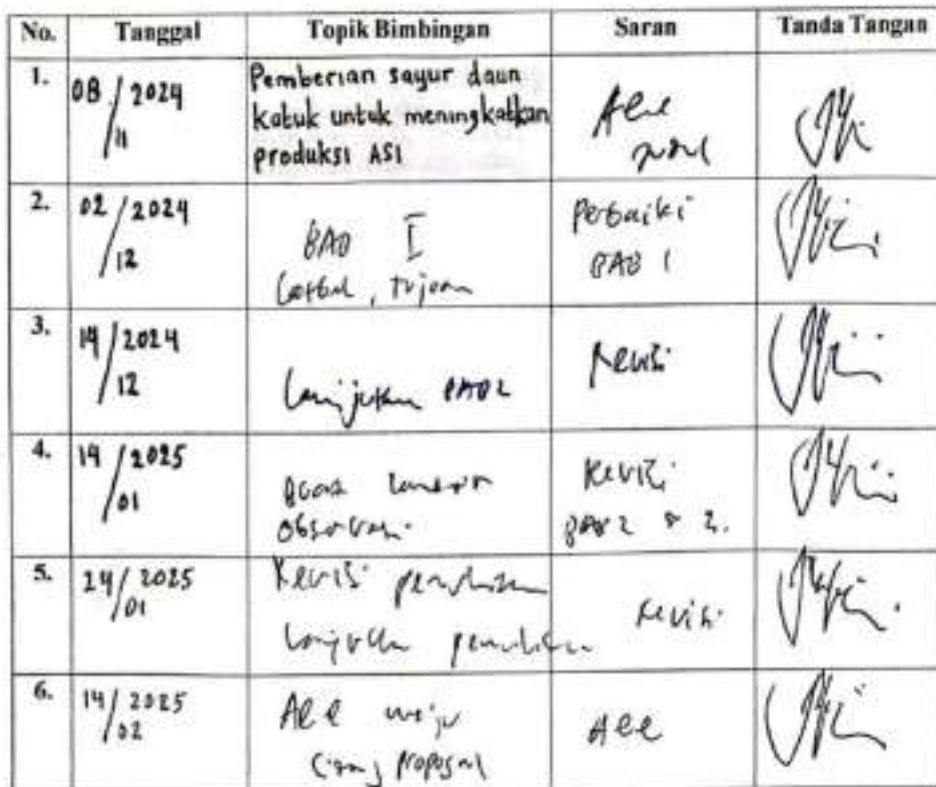 No. Tanggal Topik Bimbingan Saran Tanda Tangan
1. 08/11 2024 Pemberian sayur daun katuk untuk meningkatkan produksi ASI
Acc
2. 02/12 2024 BAB I
tujuan
Perbaiki
BAB 1
3. 19/12 2024 Lanjutkan BAB 2 Revisi
4. 14/01 2025
Observasi
Revisi
BAB 2 & 3.
5. 24/01 2025 Revisi penulisan
Lanjutkan penulisan
Revisi
6. 14/02 2025 Acc maju
Sidang proposal
Acc